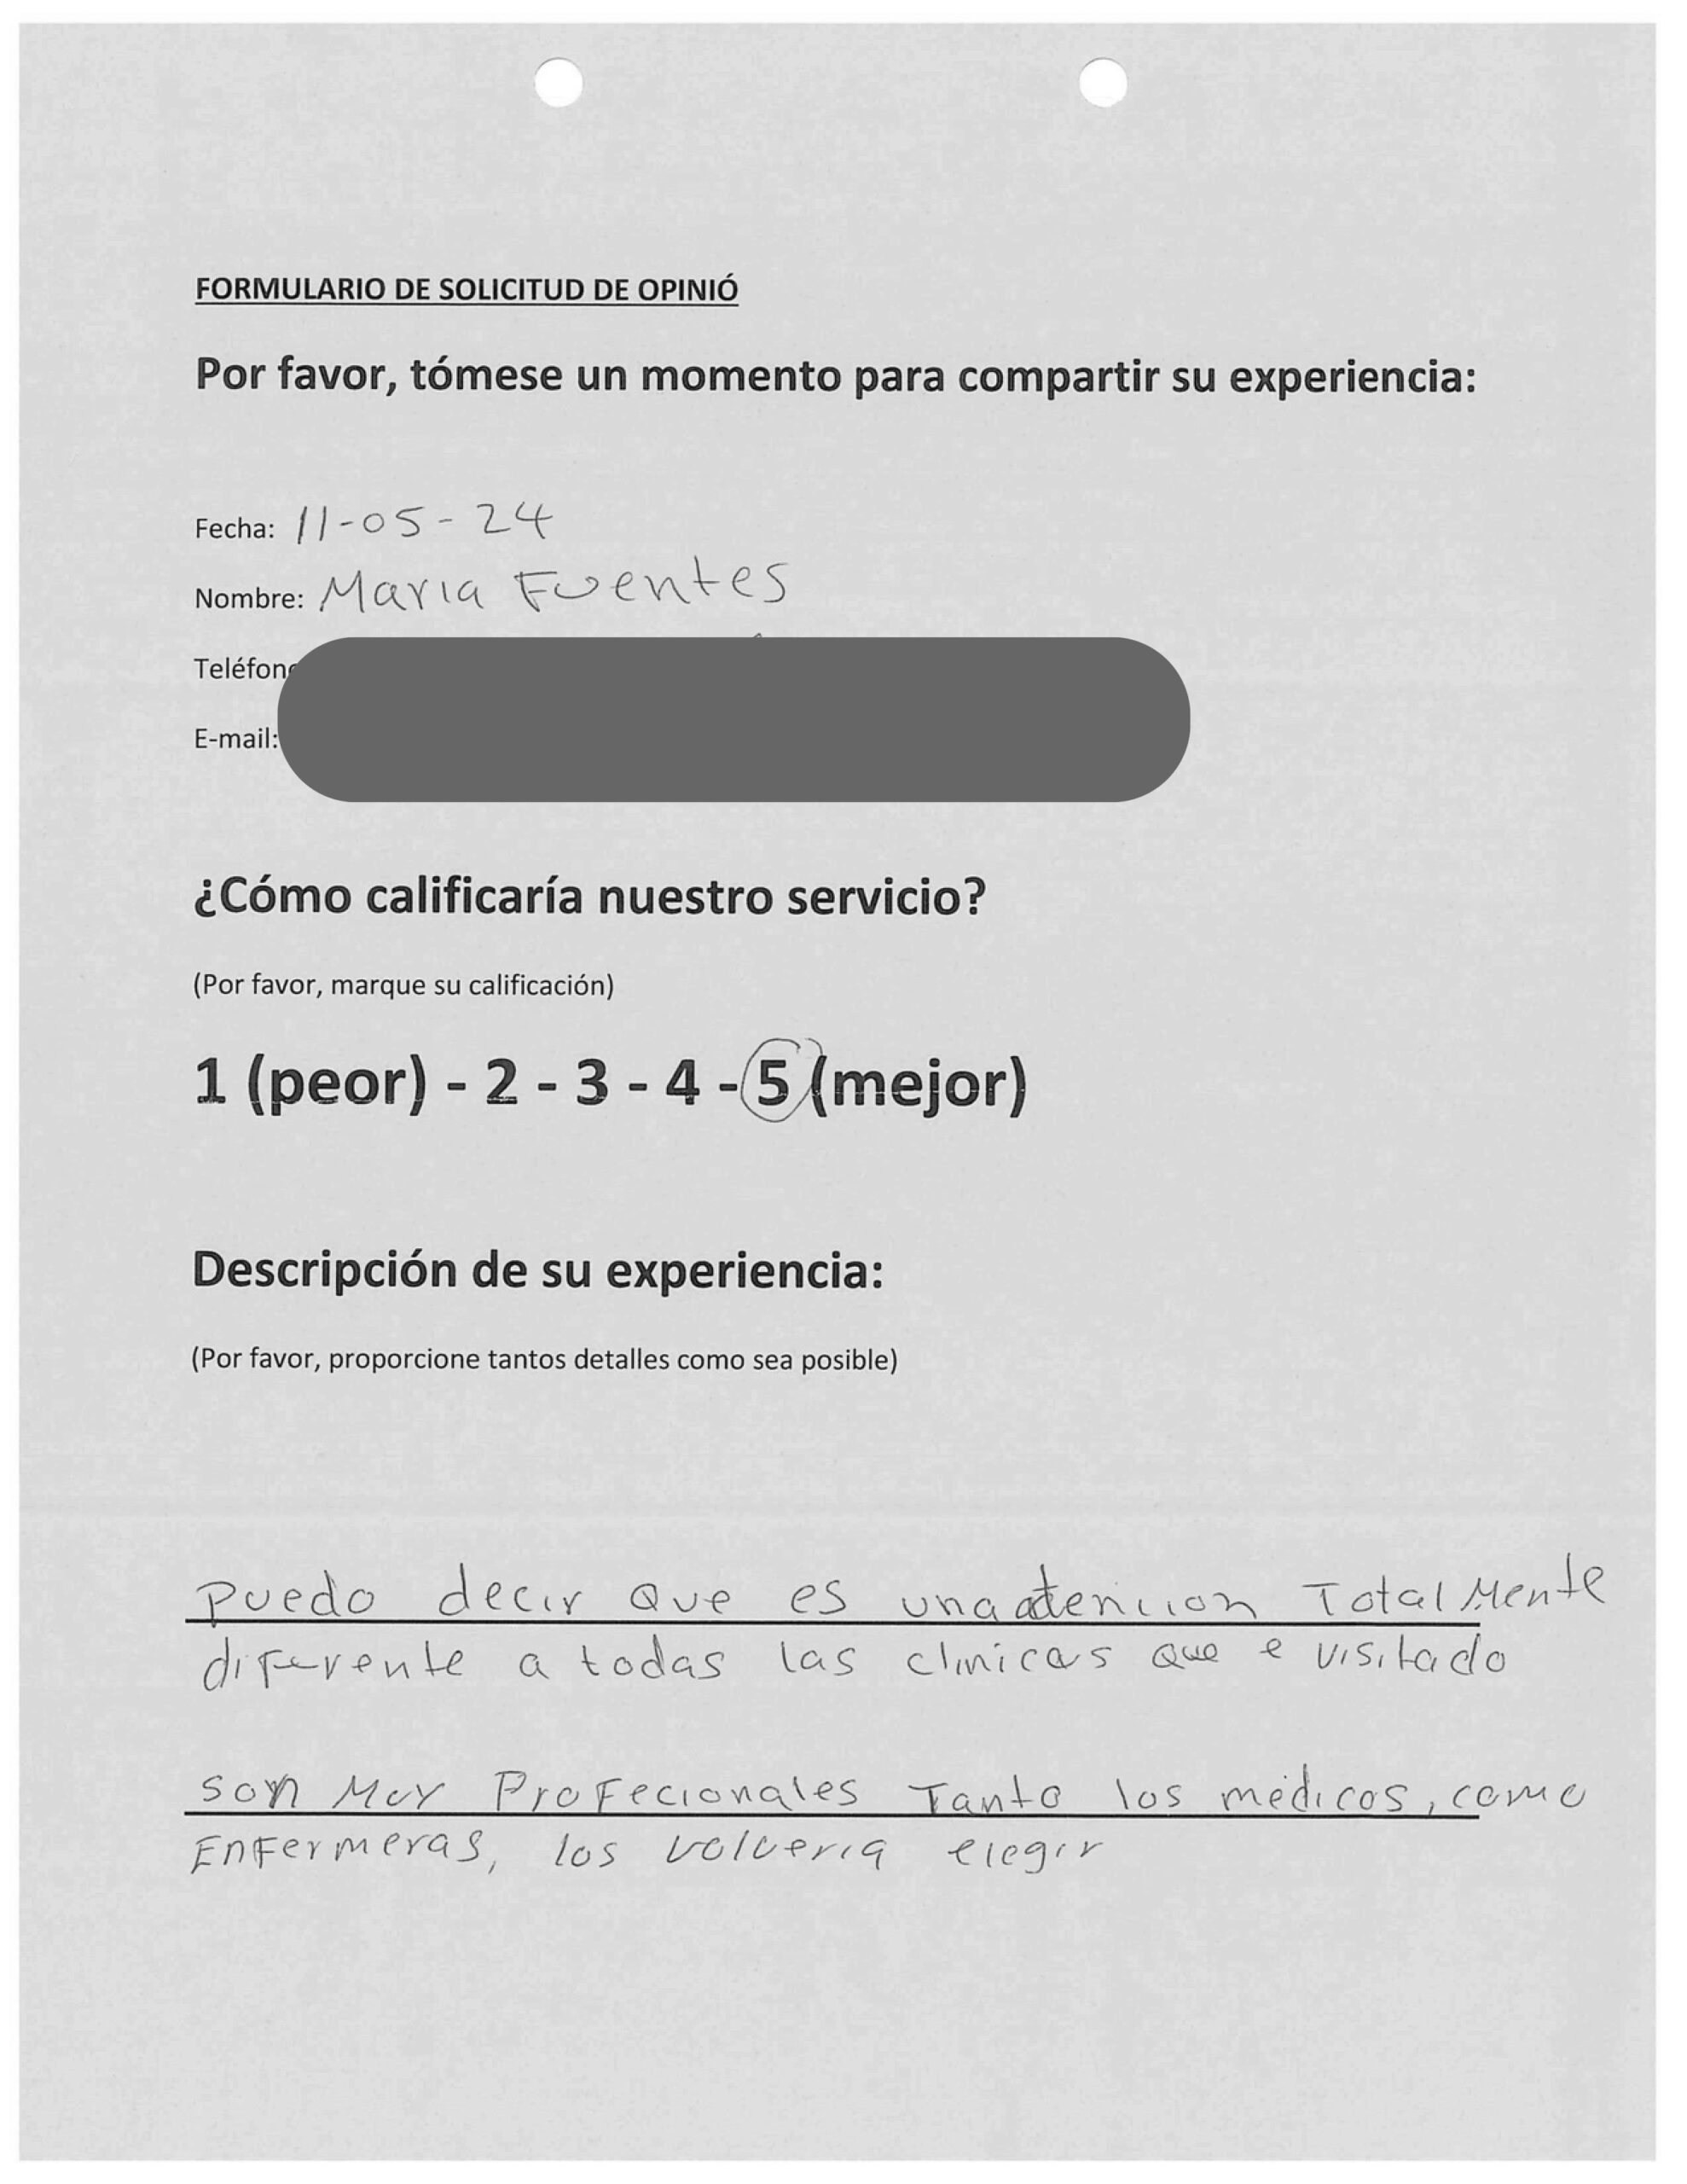 FORMULARIO DE SOLICITUD DE OPINIÓ
Por favor, tómese un momento para compartir su experiencia:
Fecha: 11-05-24
Nombre: Maria Fuentes
Teléfono
E-mail:
¿Cómo calificaría nuestro servicio?
(Por favor, marque su calificación)
1 (peor) - 2 - 3 - 4 - 5 (mejor)
Descripción de su experiencia:
(Por favor, proporcione tantos detalles como sea posible)
Puedo decir Que es una atencion Total Mente
diferente a todas las clinicas que e visitado
son Muy Profecionales Tanto los medicos, como
Enfermeras, los volveria elegir